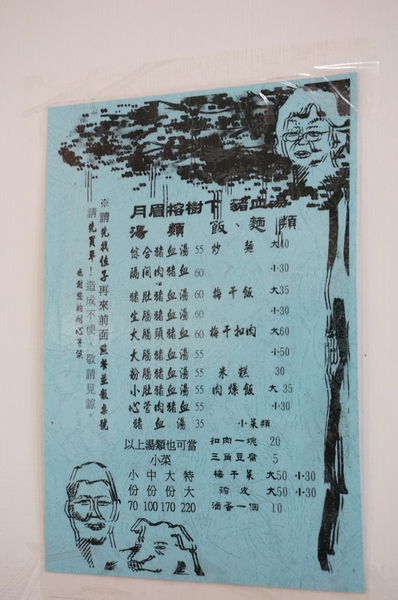 月眉榕樹下 豬血湯
湯類 飯、麵類
綜合豬血湯 55 炒麵 大40
隔間肉豬血湯 60 小30
豬肚豬血湯 60 梅干飯 大35
生腸豬血湯 60 小30
大腸頭豬血湯 60 梅干扣肉 大60
大腸豬血湯 55 小50
粉腸豬血湯 55 米糕 30
小肚豬血湯 55 肉燥飯 大35
心管肉豬血湯 55 小30
豬血湯 35 小菜類
以上湯類也可當小菜
小份 中份 大份 特大
70 100 170 220
扣肉一塊 20
三角豆腐 5
梅干菜 大50 小30
豬皮 大50 小30
滷蛋一個 10
※請先找位子再來前面點餐並報桌號
請先買單！造成不便、敬請見諒。
感謝您的耐心等候